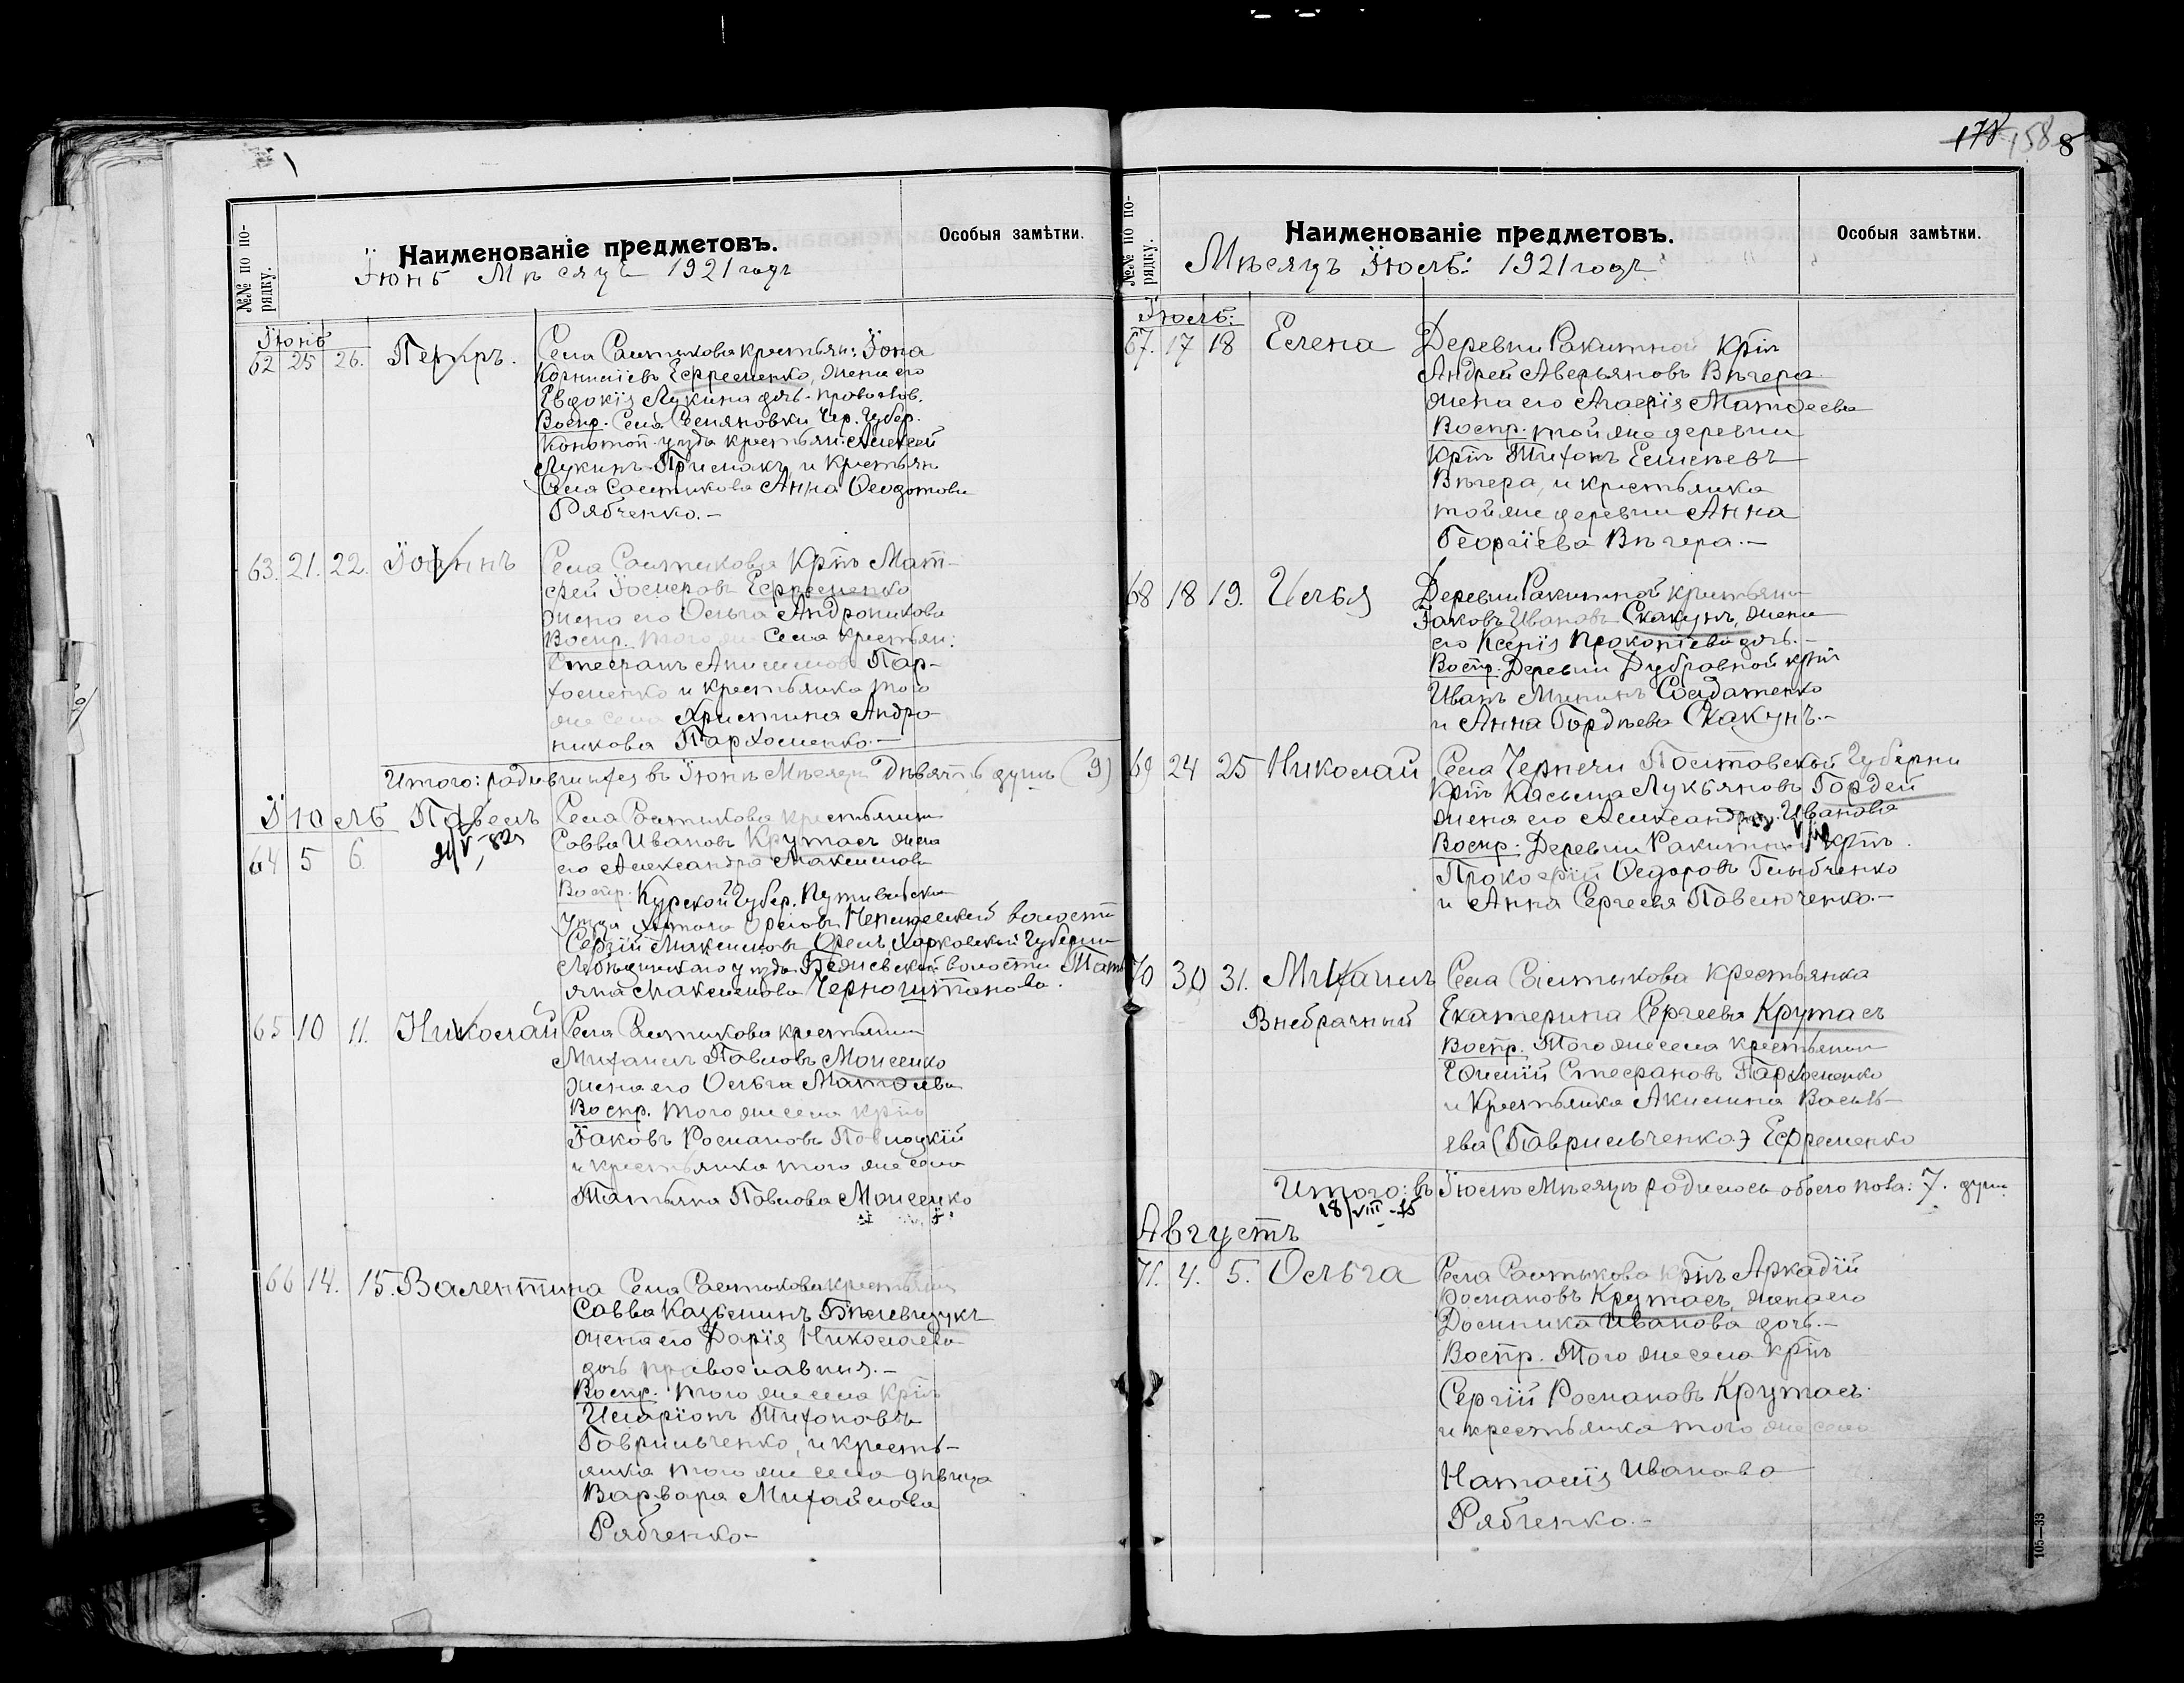 №№ по по-
рядку.
Наименованіе предметовъ.
Особыя замѣтки.
Їюнь Мѣсяцъ 1921 года
Їюнь
62 25 26. Петръ. Села Салтыкова крестьян: Їона
Корниліевъ Ефременко, жена его
Евдокія Лукина дочь. православ.
Воспр. Села Семяновки Чер. Губер.
Конотоп. уѣзда крестьян: Алексей
Лукинъ Примакъ, и крестьян
Села Салтыкова Анна Ѳеодотова
Рябченко.—
63. 21. 22. Їоаннъ Села Салтыкова Крт҃нъ Мат-
фей Їосифовъ Ефременко
жена его Ольга Андроникова
Воспр. того же Села крестьян:
Стефанъ Анисимов Пар-
хоменко и крестьянка того
же села Христина Андро-
никова Пархоменко.—
Итого: родившихся въ Їюнѣ Мѣсяцѣ Дѣвять душъ (9)
Їюль Павелъ Села Салтыкова крестьянин
64 5 6. Савва Иванов Крутась жена
его Александра Максимова
Воспр. Курской Губер. Путивльска
Уѣзда хутога Орлова волости
Сергій Максимовъ Орелъ Харковской Губернии
Лебѣдинскаго уѣзда волости Тать
яна Максимова Черноштанова.
65 10 11. Николай Села Салтыкова крестьянин
Михаилъ Павловъ Моисенко
жена его Ольга Матѳева
Воспр. того же села крт҃нъ
Їаковъ Романовъ Павлоцкїй
и крестьянка того же села
Татьяна Павлова Моисенко
66 14. 15. Валентина Села Салтыкова крестьянин
Савва Казьминъ Бѣлевцукъ
жена его Дарїя Николаева
дочь православныя.—
Воспр. того же села Крт҃нъ
Иларїонъ Тихоновъ
Гаврильченко, и кресть-
янка того же села дѣвица
Варвара Михайлова
Рябченко—
178 158 8
№№ по по-
рядку.
Наименованіе предметовъ.
Особыя замѣтки.
Мѣсяцъ Їюль: 1921 года
Їюль:
67. 17 18 Елена Деревни Ракитной Крт҃нъ
Андрей Аверьяновъ Вѣчера
жена его Агафїя Матѳеева
Воспр. той же деревни
Крт҃нъ Тихонъ
Вѣчера, и крестьянка
той же деревни Анна
Георгїева Вѣчера.—
68 18 19. Илья Деревни Ракитной крестьяни
Їаковъ Ивановъ Скакунъ, жена
его Ксенїя Прокопїева дочь.—
Воспр. Деревни Дубравной крт҃нъ
Иванъ Мининъ Солдатенко
и Анна Гордѣева Скакунъ.—
69 24 25 Николай Села Чернечи Полтовской Губерни
Крт҃нъ Касьма Лукьяновъ Гордей
жена его Александра Иванова
Воспр. Деревни Ракитной крт҃нъ.
Прокофїй Ѳедоровъ
и Анна Сергеева Павлюченко.—
70 30 31. Михаилъ Села Салтыкова крестьянка
Внебрачный Екатерина Сергеева Крутась
Воспр. Того же села крестьянин
Стефановъ Пархоменко
и Крестьянка Акилина Василь-
ева (Гаврильченко) Ефременко
Итого: въ Їюлѣ Мѣсяцѣ родилось обоего пола: 7. душъ
18/VIII-75
Августъ
71. 4. 5. Ольга Села Салтыкова крт҃нъ Аркадїй
Романовъ Крутась, жена его
Домника Иванова дочь.—
Воспр. Того же села крт҃нъ
Сергїй Романовъ Крутась.
и крестьянка того же села
Наталїя Иванова
Рябченко.—
105—33